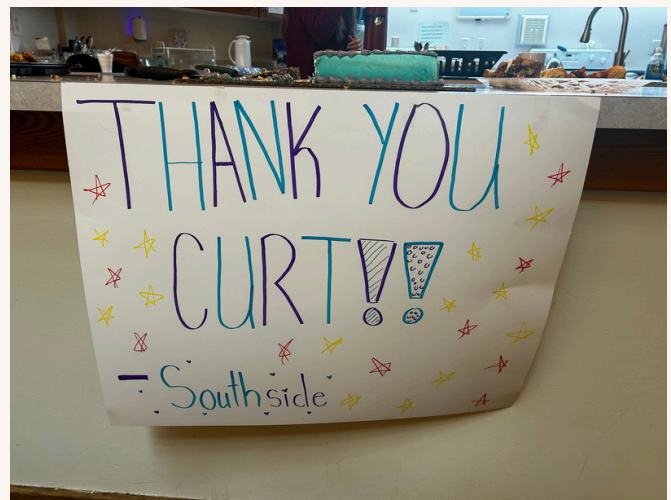 THANK YOU
CURT!!
- Southside